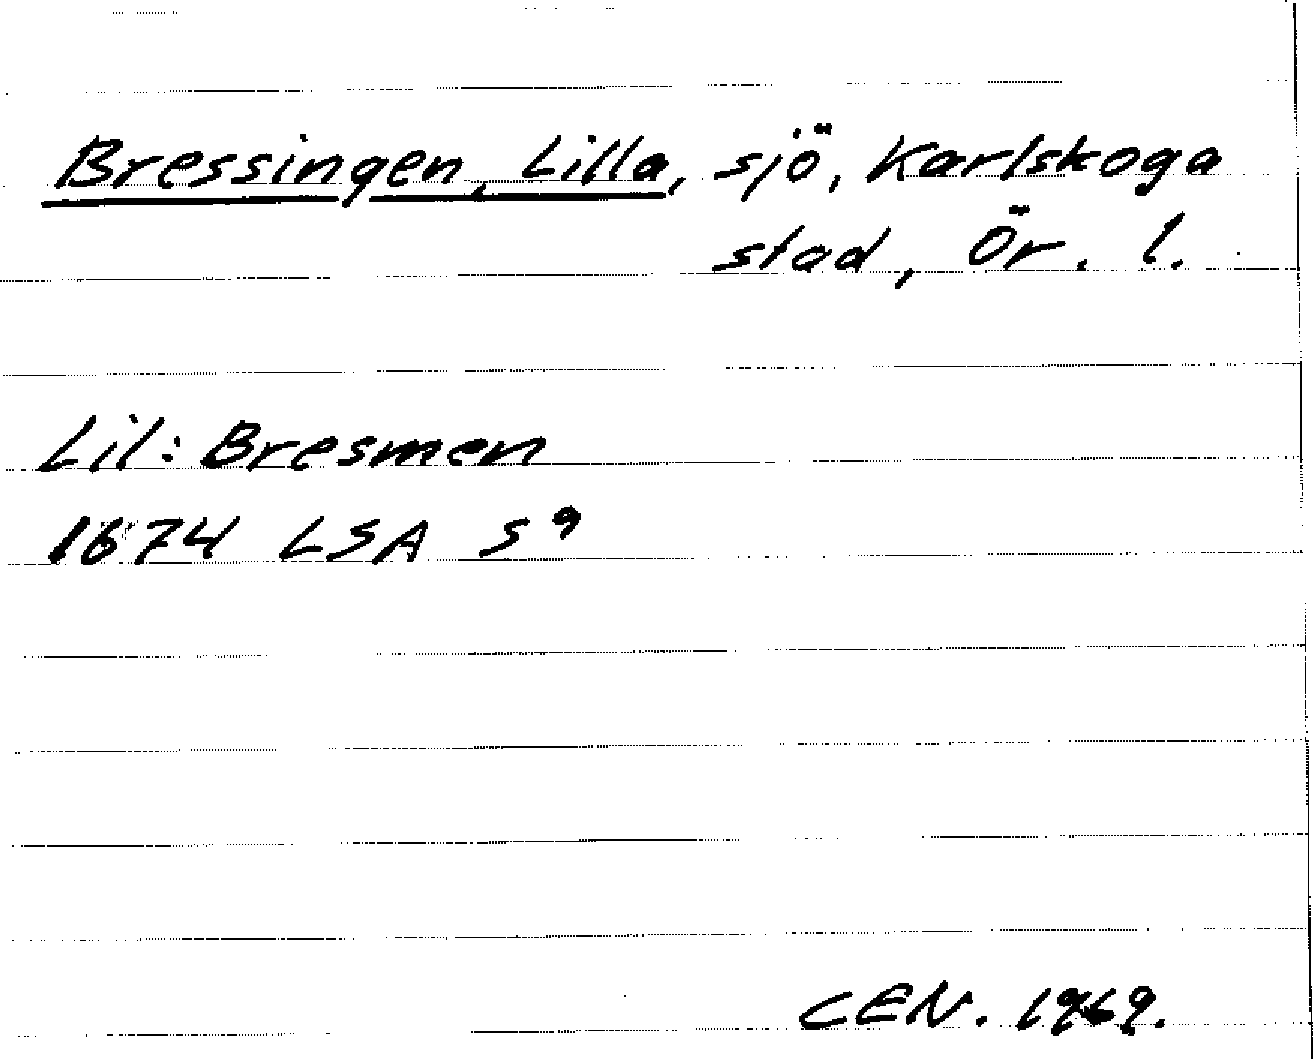 Bressingen, Lilla, sjö, Karlskoga
stad, Ör. l.
Lil: Bresmen
1674 LSA S⁹
CEN. 1969.